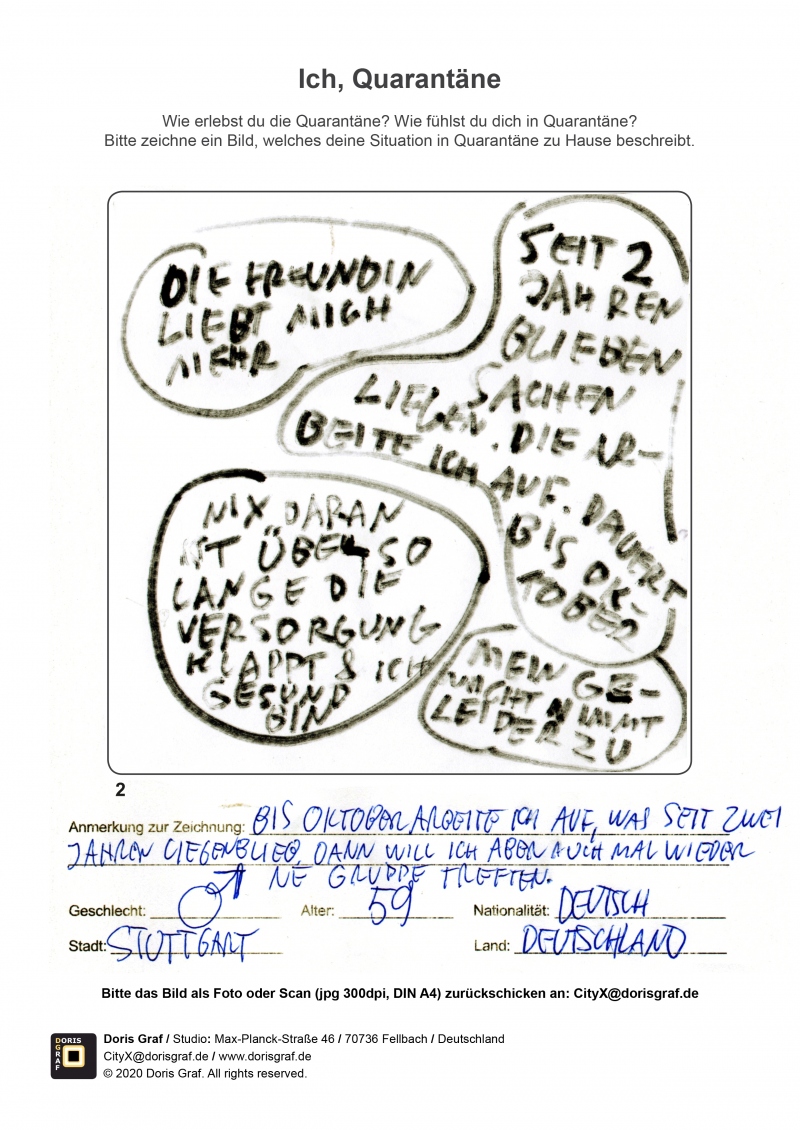 Ich, Quarantäne
Wie erlebst du die Quarantäne? Wie fühlst du dich in Quarantäne?
Bitte zeichne ein Bild, welches deine Situation in Quarantäne zu Hause beschreibt.
DIE FREUNDIN
LIEBT MICH
MEHR
SEIT 2
JAHREN
BLIEBEN
SACHEN
LIEGEN. DIE AR-
BEITE ICH AUF. DAUERT
BIS OK-
TOBER
NIX DARAN
IST ÜBEL SO
LANGE DIE
VERSORGUNG
KLAPPT & ICH
GESUND
BIN
MEIN GE-
WICHT NIMMT
LEIDER ZU
2
Anmerkung zur Zeichnung: BIS OKTOBER ARBEITE ICH AUF, WAS SEIT ZWEI
JAHREN LIEGENBLIEB. DANN WILL ICH ABER AUCH MAL WIEDER
NE GRUPPE TREFFEN.
Geschlecht: ♂ Alter: 59 Nationalität: DEUTSCH
Stadt: STUTTGART Land: DEUTSCHLAND
Bitte das Bild als Foto oder Scan (jpg 300dpi, DIN A4) zurückschicken an: CityX@dorisgraf.de
DORIS
GRAF
Doris Graf / Studio: Max-Planck-Straße 46 / 70736 Fellbach / Deutschland
CityX@dorisgraf.de / www.dorisgraf.de
© 2020 Doris Graf. All rights reserved.